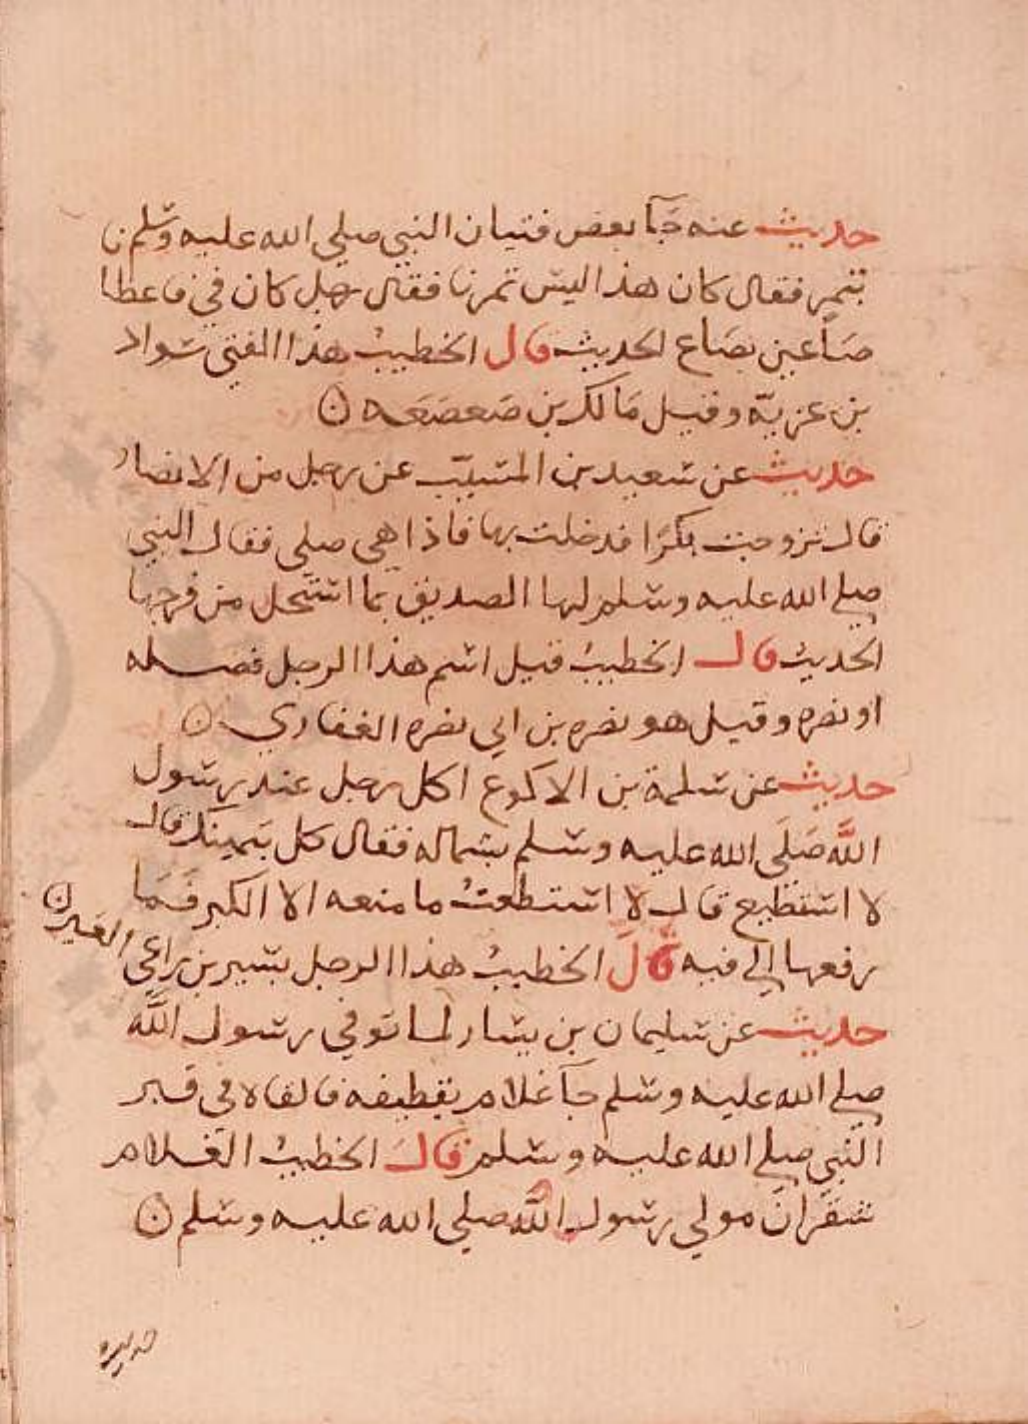 حديث عنه جآ بعض فتيان النبي صلي الله عليه وسلم
بتمر فقال كان هذا ليس تمرنا فقال رجل كان في فاعطا
صاعين بصاع الحديث قال الخطيب هذا الفتي سواد
بن غزيه وقيل مالك بن صعصعه
حديث عن سعيد بن المسيب عن رجل من الانصار
قال تزوجت بكرا فدخلت بها فاذا هي حبلي فقال النبي
صلي الله عليه وسلم لها الصديق بما استحل من فرجها
الحديث قال الخطيب قيل اسم هذا الرجل فضله
او نضره وقيل هو نضره بن ابي نضره الغفاري
حديث عن سلمة بن الاكوع اكل رجل عند رسول
الله صلي الله عليه وسلم بشماله فقال كل بيمينك قال
لا استطيع قال لا استطعت ما منعه الا الكبر فما
رفعها الي فيه قال الخطيب هذا الرجل بشير بن راعي العير
حديث عن سليمان بن يسار لما توفي رسول الله
صلي الله عليه وسلم جآ غلام بقطيفه فالقاه في قبر
النبي صلي الله عليه وسلم قال الخطيب الغلام
شقران مولي رسول الله صلي الله عليه وسلم